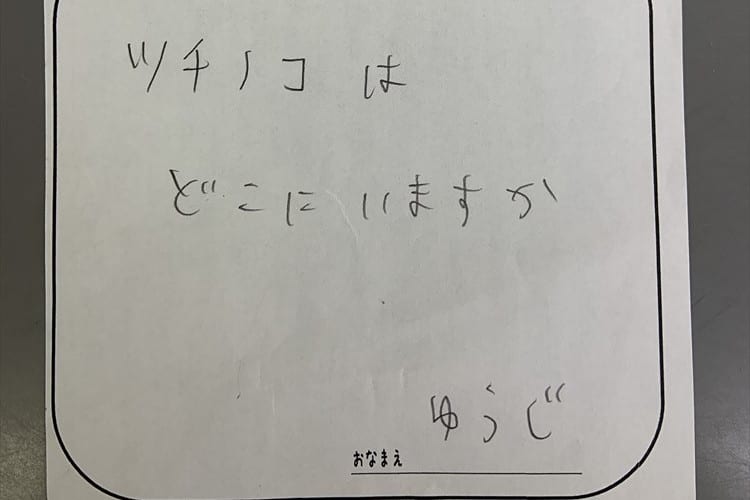 ツチノコ は
どこに いますか
ゆうじ
おなまえ